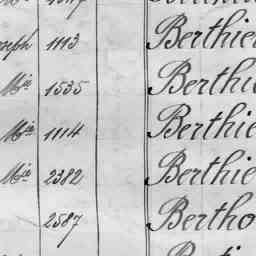 seph 1113 Berthie
Mie 1535 Berthie
Mie 1114 Berthie
Mie 2382 Berthie
2587 Bertho